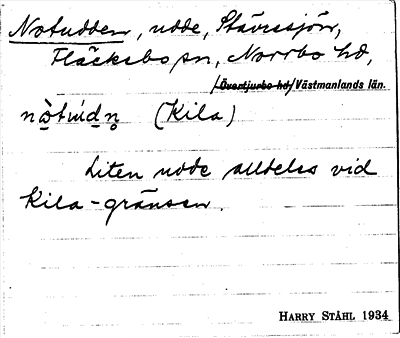 Notudden, udde, Stävressjön,
Fläckebo sn, Norrbo hd,
/Övertjurbo hd/ Västmanlands län.
(Kila)
Liten udde alldeles vid
Kila-gränsen.
HARRY STÅHL 1934